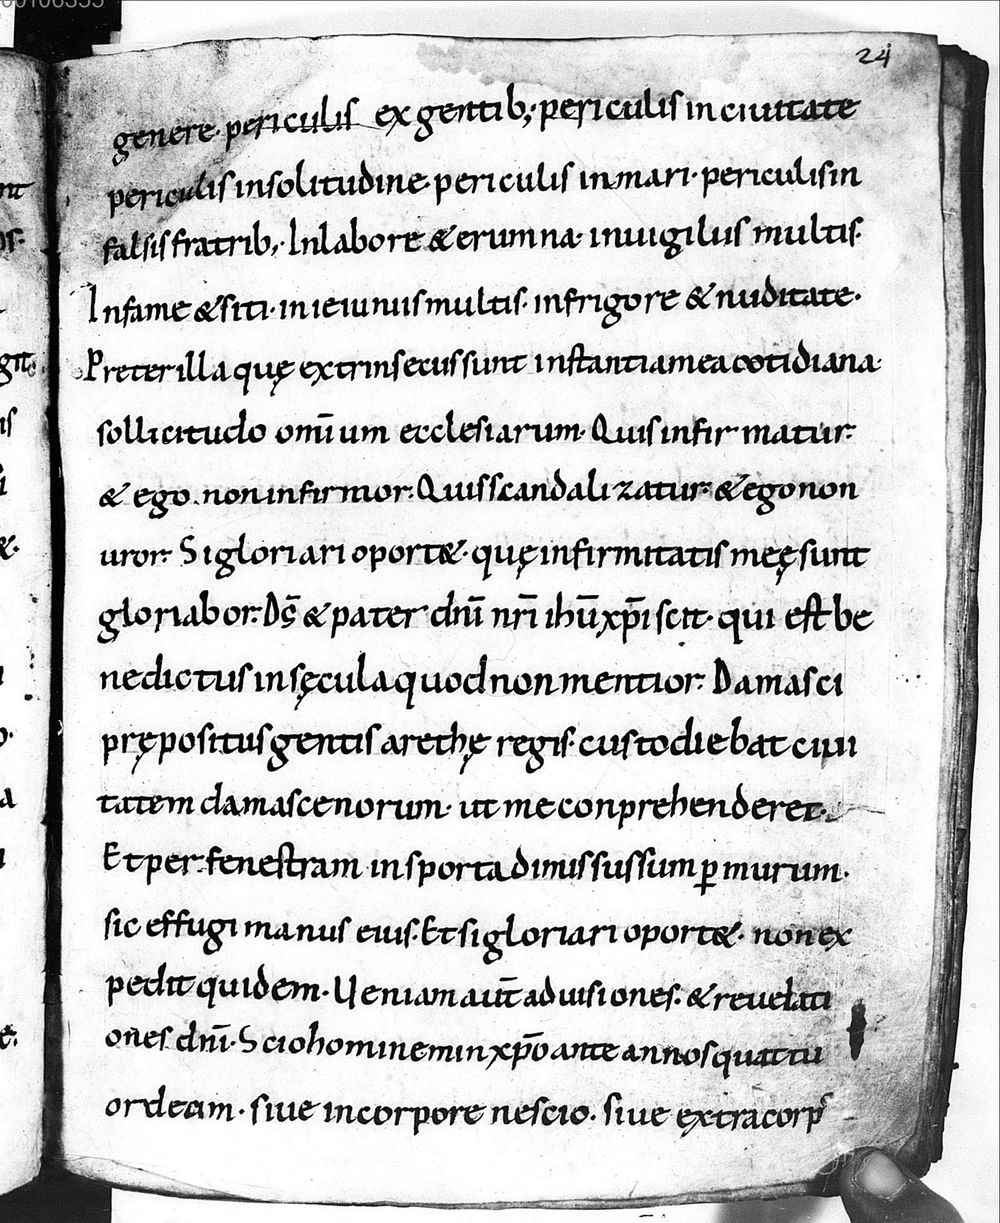 00106355
24
genere· periculis ex gentib;· periculis in ciuitate
periculis in solitudine· periculis in mari· periculis in
falsis fratrib;· In labore & erumna· in uigiliis multis·
In fame & siti· in ieiuniis multis· in frigore & nuditate·
Preter illa quę extrinsecus sunt instantia mea cotidiana·
sollicitudo omiū um ecclesiarum· Quis infirmatur·
& ego non infirmor· Quis scandalizatur· & ego non
uror· Si gloriari oport&· quę infirmitatis meę sunt
gloriabor· Ds̄ & pater dnī nrī ihū xp̄i scit· qui est be
nedictus in sęcula quod non mentior· Damasci
prępositus gentis arethę regis· custodiebat ciui
tatem damascenorum· ut me conprehenderet·
Et per fenestram in sporta dimissus sum ꝑ murum·
sic effugi manus eius· Et si gloriari oport&· non ex
pedit quidem· Ueniam aut̄ ad uisiones· & reuelati
ones dnī· Scio hominem in xp̄o ante annos quattu
ordecim· siue in corpore nescio· siue extra corp̄